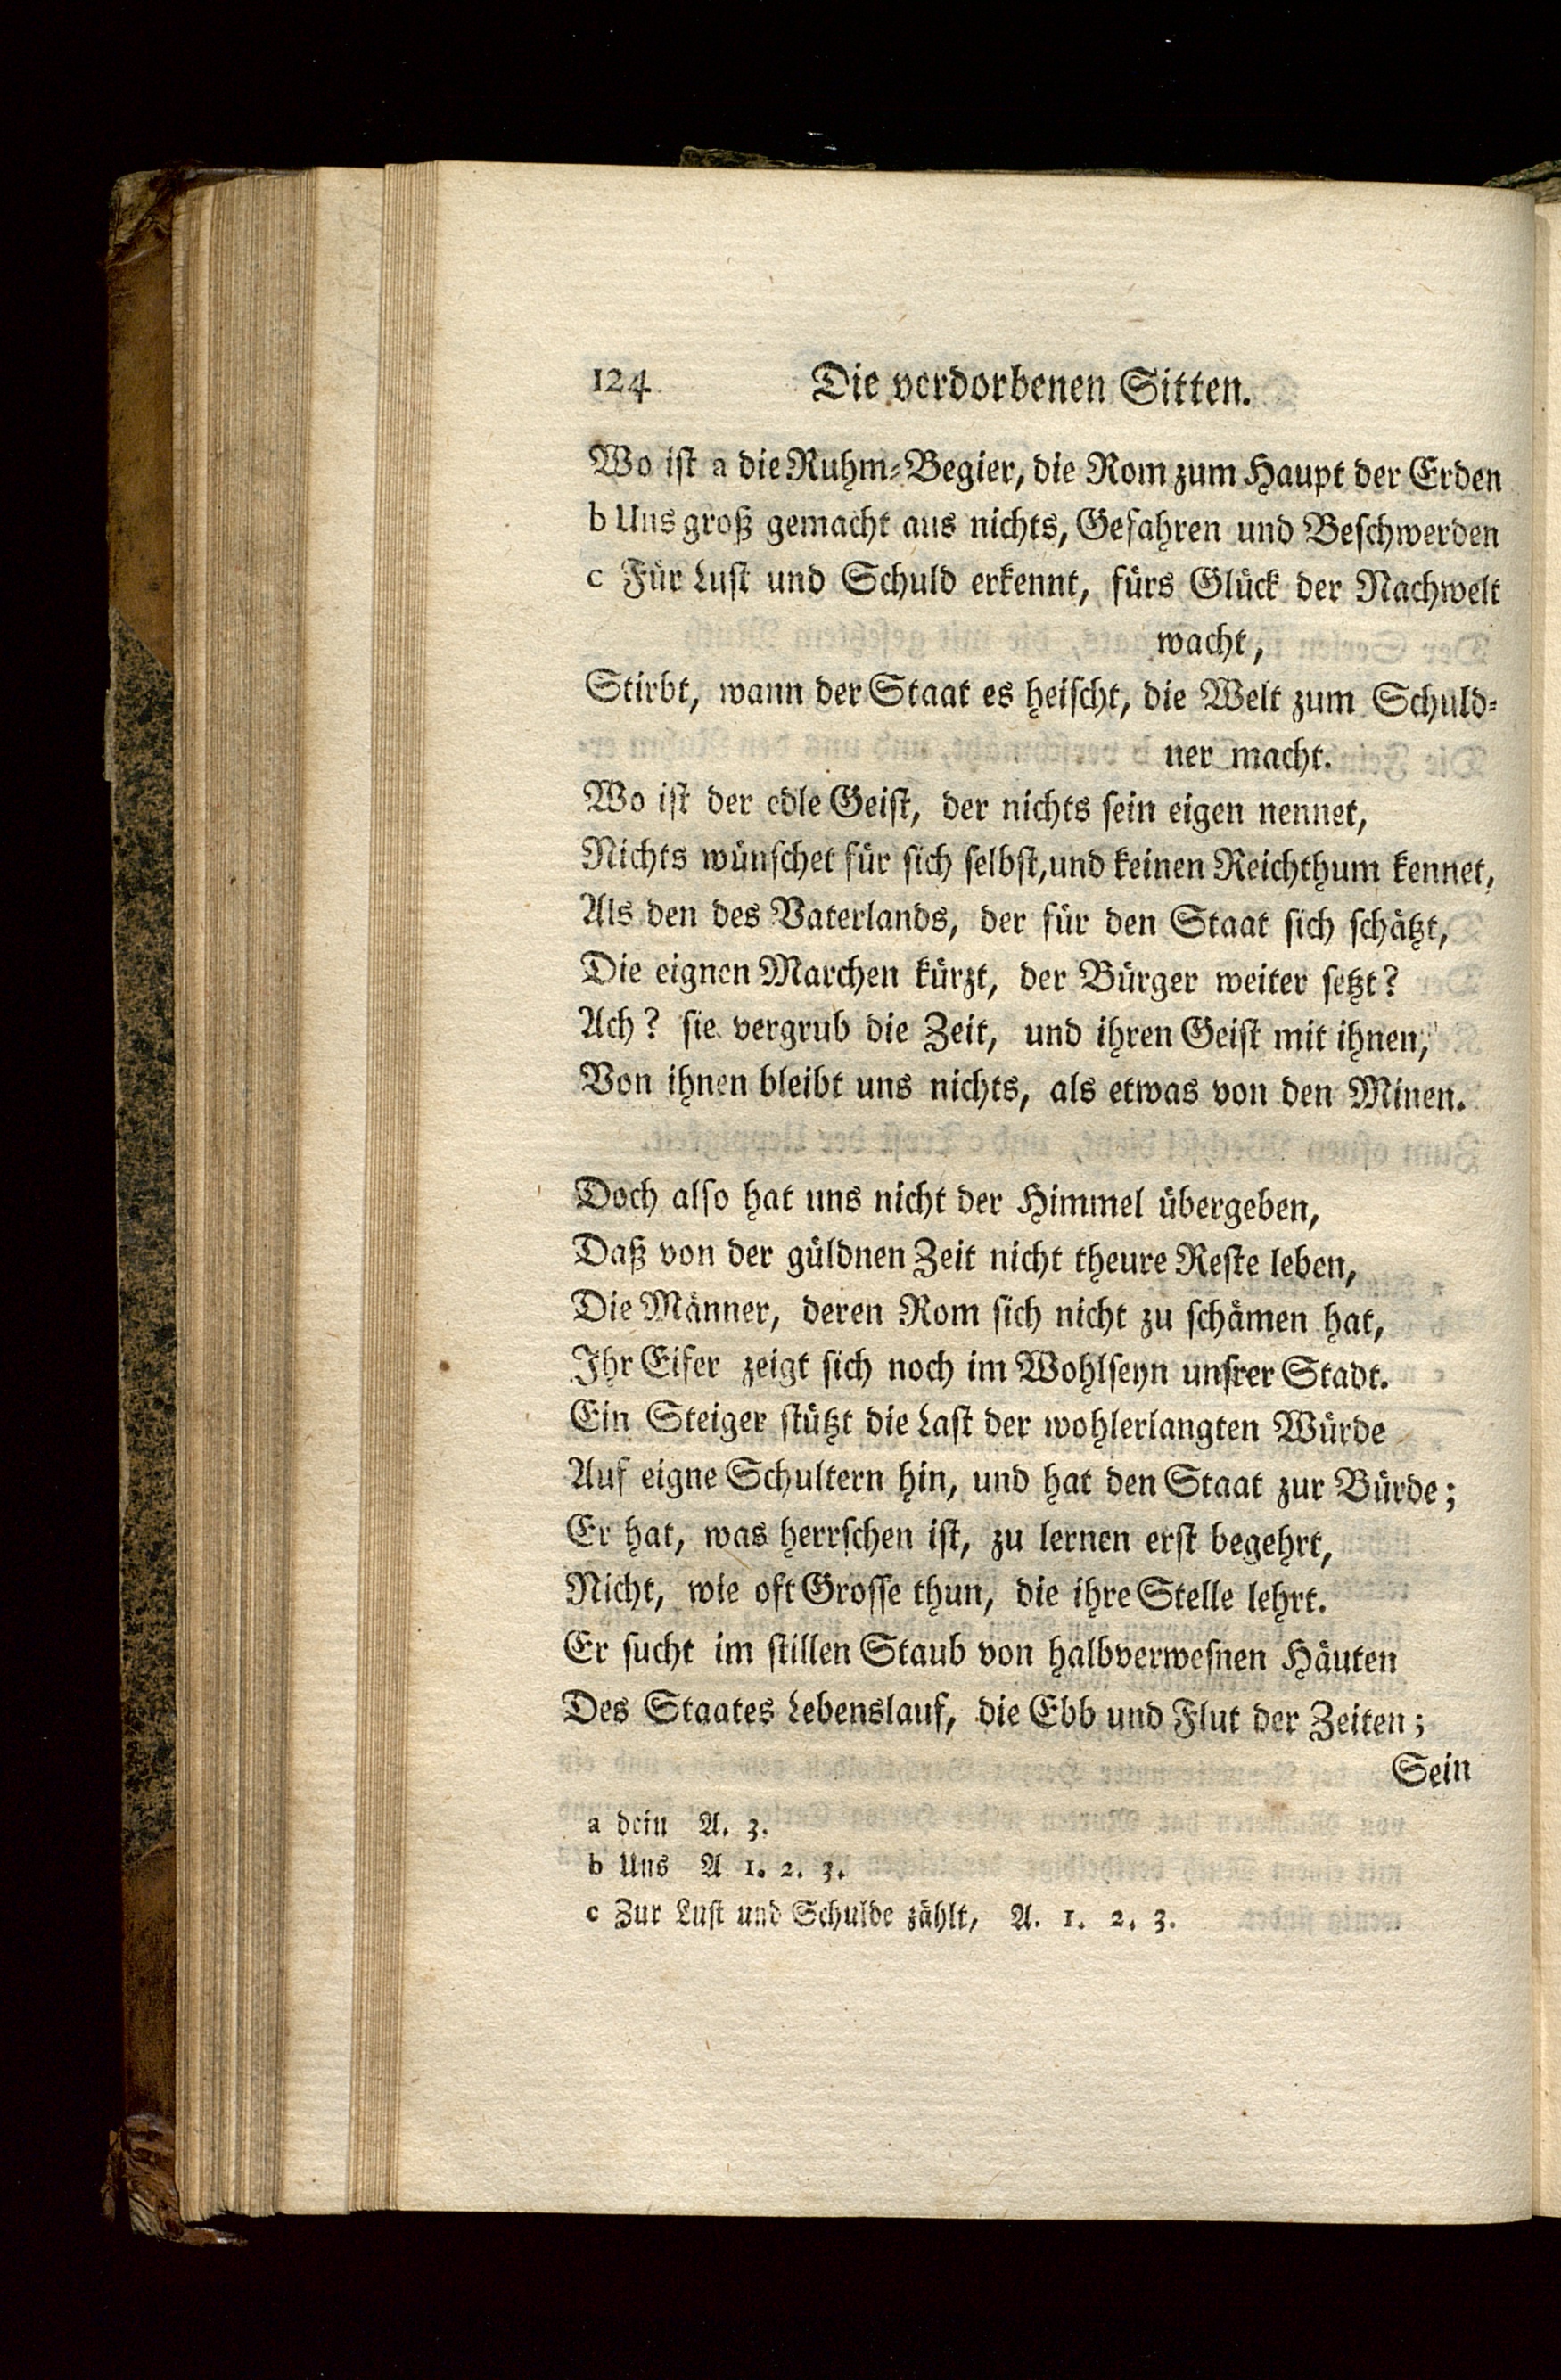 124 Die verdorbenen Sitten.
Wo ist a die Ruhm-Begier, die Rom zum Haupt der Erden
b Uns groß gemacht aus nichts, Gefahren und Beschwerden
c Für Lust und Schuld erkennt, fürs Glück der Nachwelt
wacht,
Stirbt, wann der Staat es heischt, die Welt zum Schuld-
ner macht.
Wo ist der edle Geist, der nichts sein eigen nennet,
Nichts wünschet für sich selbst, und keinen Reichthum kennet,
Als den des Vaterlands, der für den Staat sich schätzt,
Die eignen Marchen kürzt, der Bürger weiter setzt?
Ach? sie vergrub die Zeit, und ihren Geist mit ihnen,
Von ihnen bleibt uns nichts, als etwas von den Minen.
Doch also hat uns nicht der Himmel übergeben,
Daß von der güldnen Zeit nicht theure Reste leben,
Die Männer, deren Rom sich nicht zu schämen hat,
Ihr Eifer zeigt sich noch im Wohlseyn unsrer Stadt.
Ein Steiger stützt die Last der wohlerlangten Würde
Auf eigne Schultern hin, und hat den Staat zur Bürde;
Er hat, was herrschen ist, zu lernen erst begehrt,
Nicht, wie oft Grosse thun, die ihre Stelle lehrt.
Er sucht im stillen Staub von halbverwesnen Häuten
Des Staates Lebenslauf, die Ebb und Flut der Zeiten;
Sein
a dein A. 3.
b Uns A 1. 2. 3.
c Zur Lust und Schulde zählt, A. 1. 2. 3.